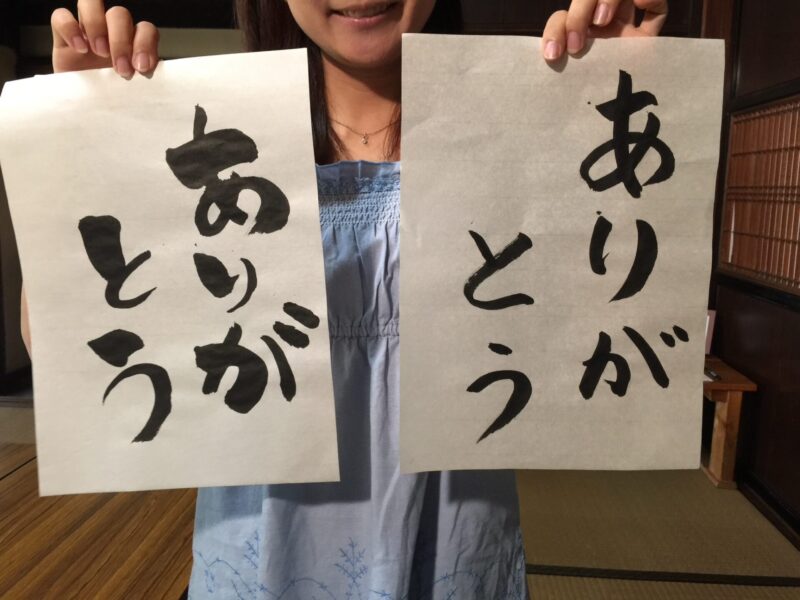 ありが
とう
ありが
とう